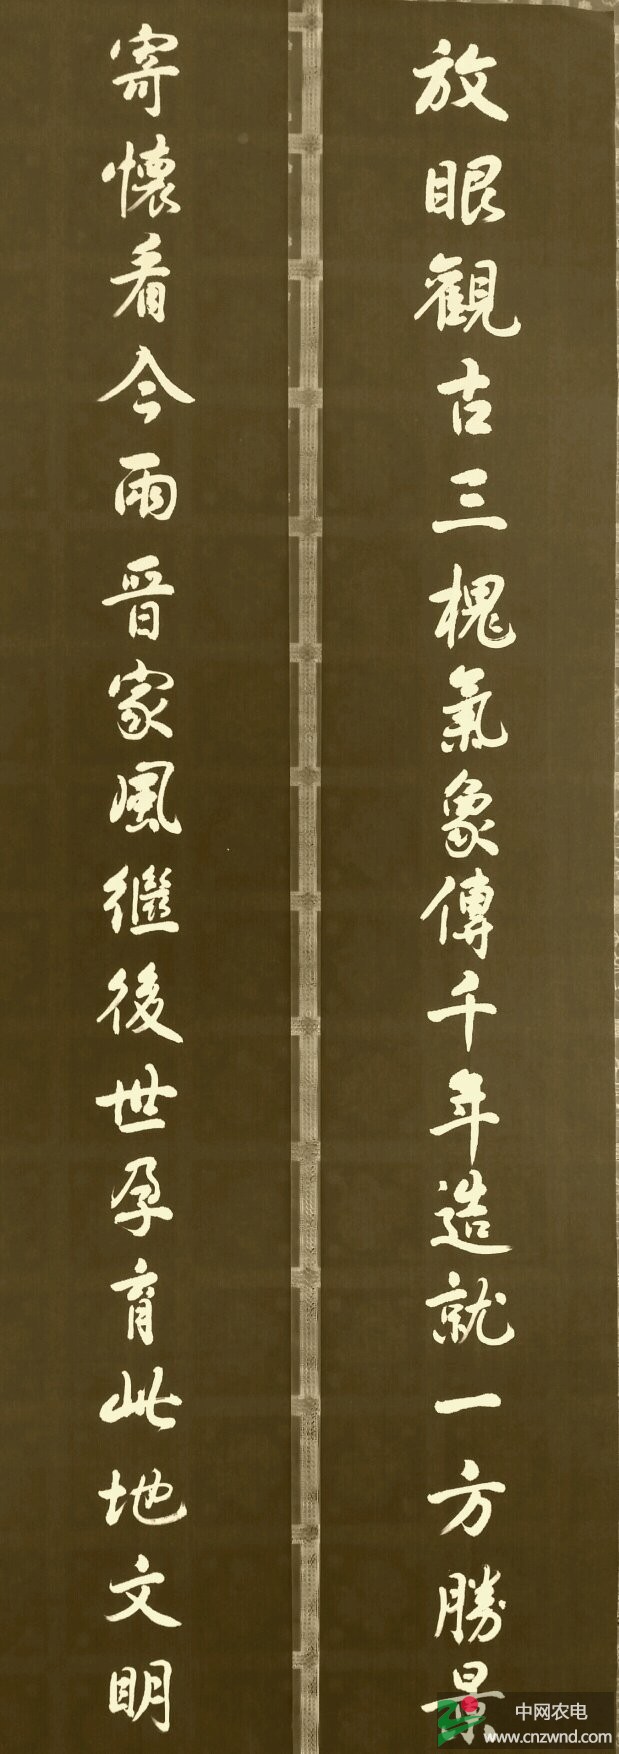 放眼觀古三槐氣象傳千年造就一方勝景
寄懷看今兩晋家風繼後世孕育此地文明
中网农电
www.cnzwnd.com